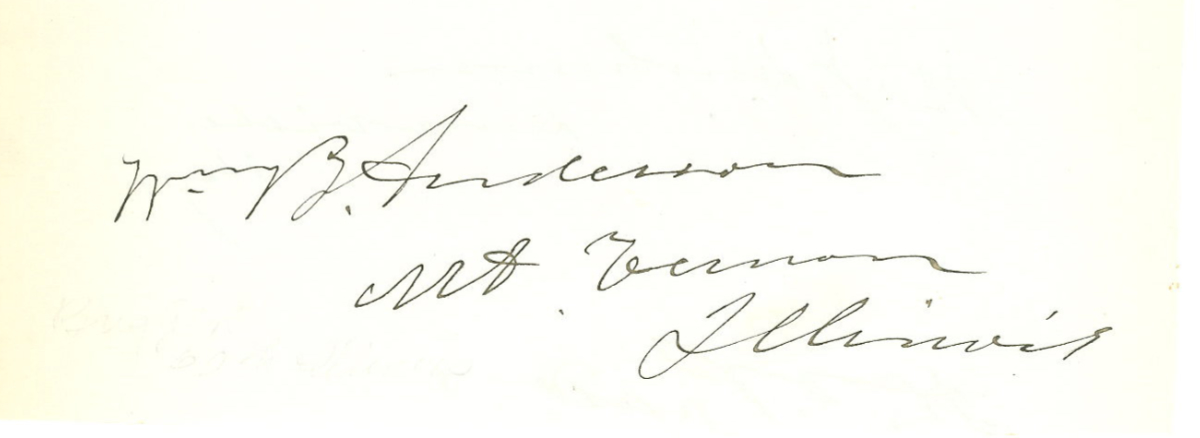 Wm B. Anderson
Mt. Vernon
Illinois